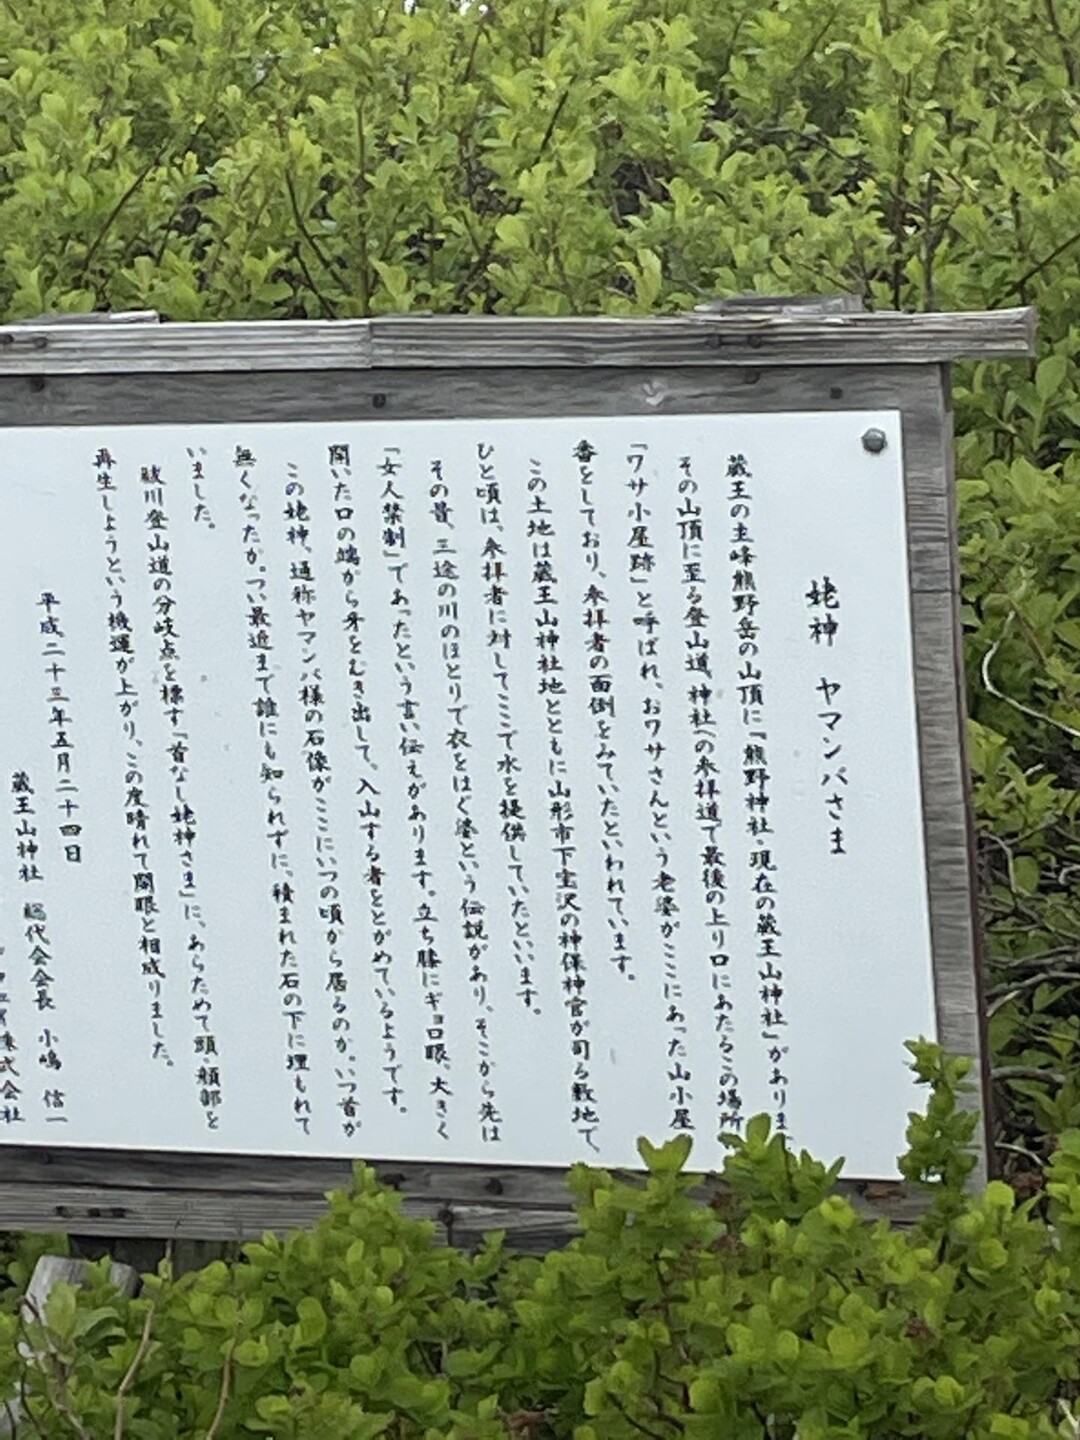 姥神 ヤマンバさま
蔵王の主峰熊野岳の山頂に「熊野神社・現在の蔵王山神社」がありま
その山頂に至る登山道、神社への参拝道で最後の上り口にあたるこの場所
「ワサ小屋跡」と呼ばれ、おワサさんという老婆がここにあった山小屋
番をしており、参拝者の面倒をみていたといわれています。
この土地は蔵王山神社地とともに山形市下宝沢の神保神官が司る敷地で、
ひと頃は、参拝者に対してここで水を提供していたといいます。
その昔、三途の川のほとりで衣をはぐ婆という伝説があり、そこから先は
「女人禁制」であったという言い伝えがあります。立ち膝にギョロ眼、大きく
開いた口の端から牙をむき出して、入山する者をとがめているようです。
この姥神、通称ヤマンバ様の石像がここにいつの頃から居るのか、いつ首が
無くなったか。つい最近まで誰にも知られずに、積まれた石の下に埋もれて
いました。
祓川登山道の分岐点を標す「首なし姥神さま」に、あらためて頭・顔部を
再生しようという機運が上がり、この度晴れて開眼と相成りました。
平成二十三年五月二十四日
蔵王山神社 総代会会長 小嶋 信一
株式会社